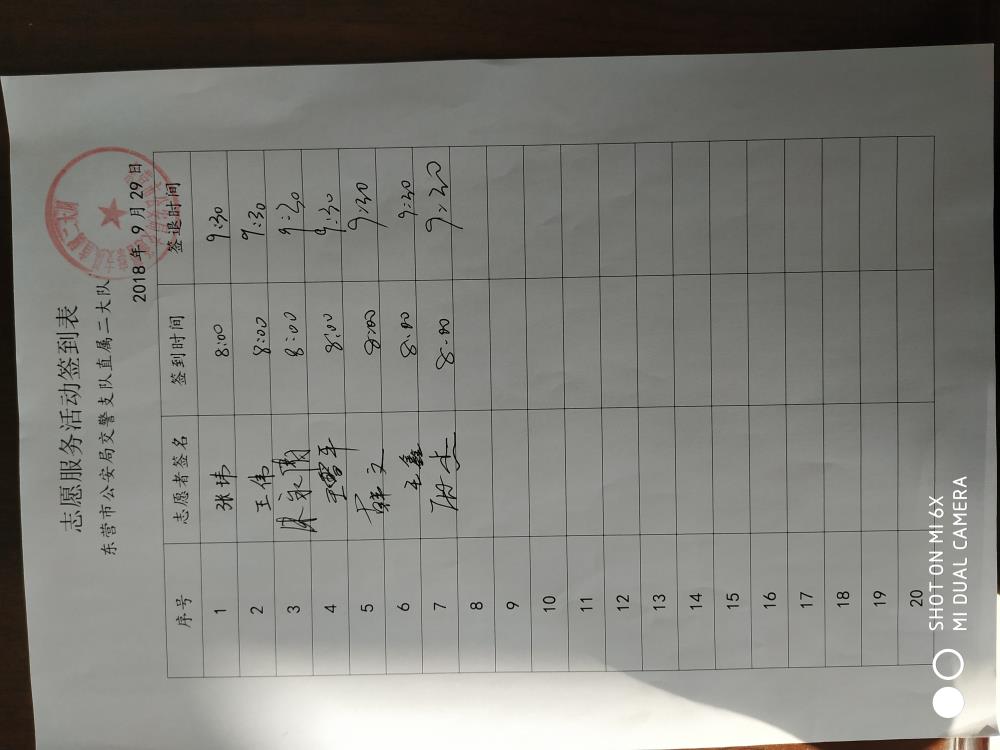 志愿服务活动签到表
东营市公安局交警支队直属二大队
2018年 9月 29日
序号 志愿者签名 签到时间 签退时间
1 张玮 8:00 9:30
2 王伟 8:00 9:30
3 8:00 9:30
4 王雪平 8:00 9:30
5 薛文 8:00 9:30
6 王鑫 8:00 9:30
7 8:00 9:30
8
9
10
11
12
13
14
15
16
17
18
19
20
SHOT ON MI 6X
MI DUAL CAMERA